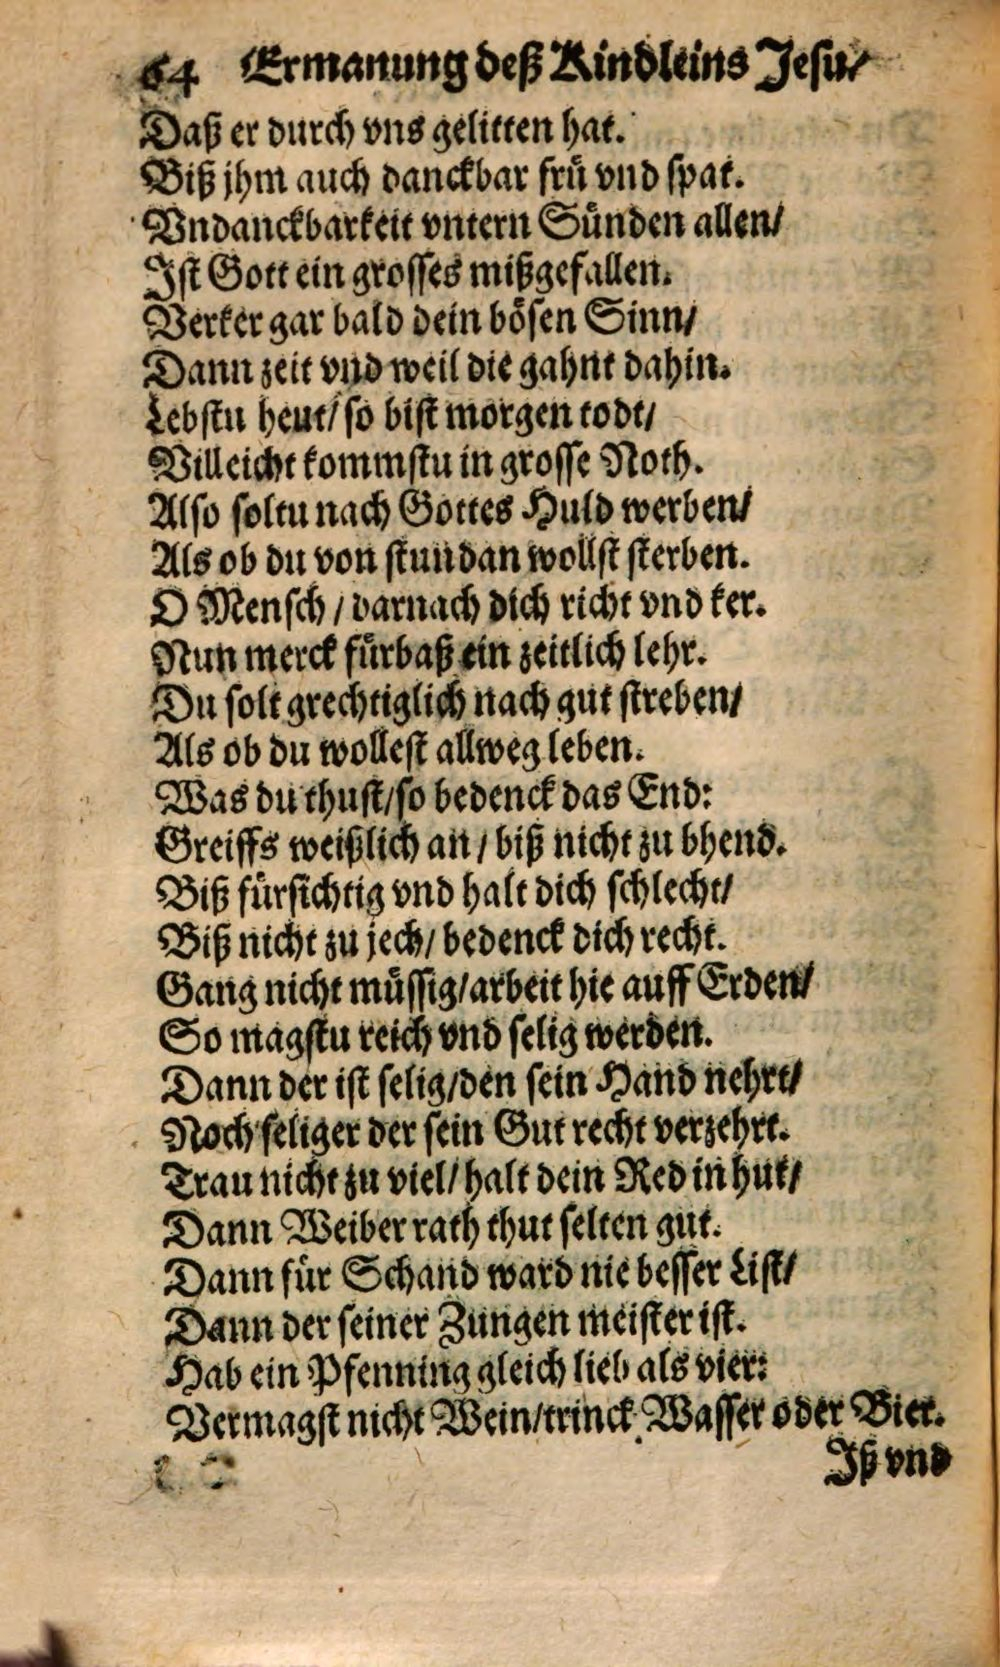 64 Ermanung deß Kindleins Jesu/
Daß er durch vns gelitten hat.
Biß jhm auch danckbar frü vnd spat.
Vndanckbarkeit vntern Sünden allen/
Jst Gott ein grosses mißgefallen.
Verker gar bald dein bösen Sinn/
Dann zeit vnd weil die gahnt dahin.
Lebstu heut/ so bist morgen todt/
Villeicht kommstu in grosse Noth.
Also soltu nach Gottes Huld werben/
Als ob du von stundan wollst sterben.
O Mensch / darnach dich richt vnd ker.
Nun merck fürbaß ein zeitlich lehr.
Du solt grechtiglich nach gut streben/
Als ob du wollest allweg leben.
Was du thust/so bedenck das End:
Greiffs weißlich an / biß nicht zu bhend.
Biß fürsichtig vnd halt dich schlecht/
Biß nicht zu jech/ bedenck dich recht.
Gang nicht müssig/arbeit hie auff Erden/
So magstu reich vnd selig werden.
Dann der ist selig/den sein Hand nehrt/
Noch seliger der sein Gut recht verzehrt.
Trau nicht zu viel/ halt dein Red in hut/
Dann Weiber rath thut selten gut.
Dann für Schand ward nie besser List/
Dann der seiner Zungen meister ist.
Hab ein Pfenning gleich lieb als vier:
Vermagst nicht Wein/trinck Wasser oder Bier.
Jß vnd